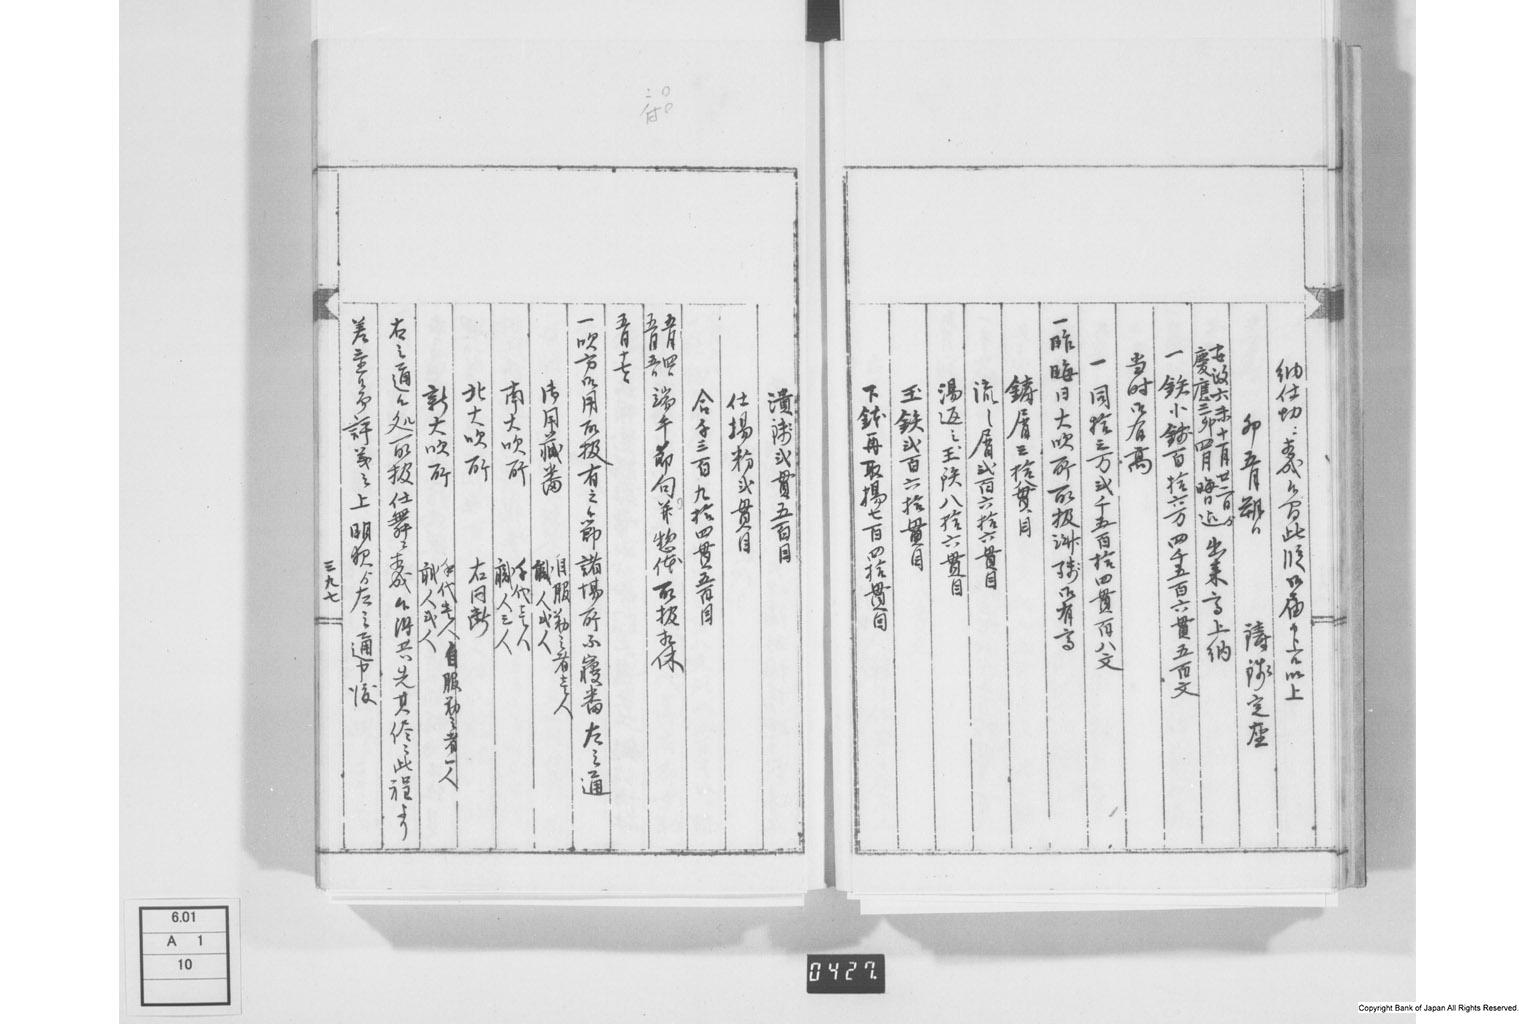 納仕切ニ委敷分此段御届申上候以上
卯五月朔日 鋳銭定座
安政六未十月廿二日ゟ
慶応三卯四月晦日迄 出来高上納
一 鉄小銭百拾六万四千五百六貫五百文
当時御有高
一 同拾三万弐千五百拾四貫百八文
一昨晦日大吹所取扱銑銭御有高
鋳屑三拾貫目
流し屑弐百六拾六貫目
湯返之玉鉄八拾六貫目
玉鉄弐百六拾貫目
下銑再取揚七百四拾貫目
潰銭弐貫五百目
仕揚粉弐貫目
合千三百九拾四貫五百目
五月四日
五月五日 端午節句並惣休取扱相休
五月十七日
一吹方御用取扱有之節諸場所不寝番左之通
御用蔵番 自服勤之者壱人
職人弐人
南大吹所 手代壱人
職人三人
北大吹所 右同断
新大吹所 手代壱人 自服勤之者一人
職人弐人
右之通処取扱仕舞
差重り評義之上明夜ゟ左之通申渡
三九七
6.01
A 1
10
0427.
Copyright Bank of Japan All Rights Reserved.